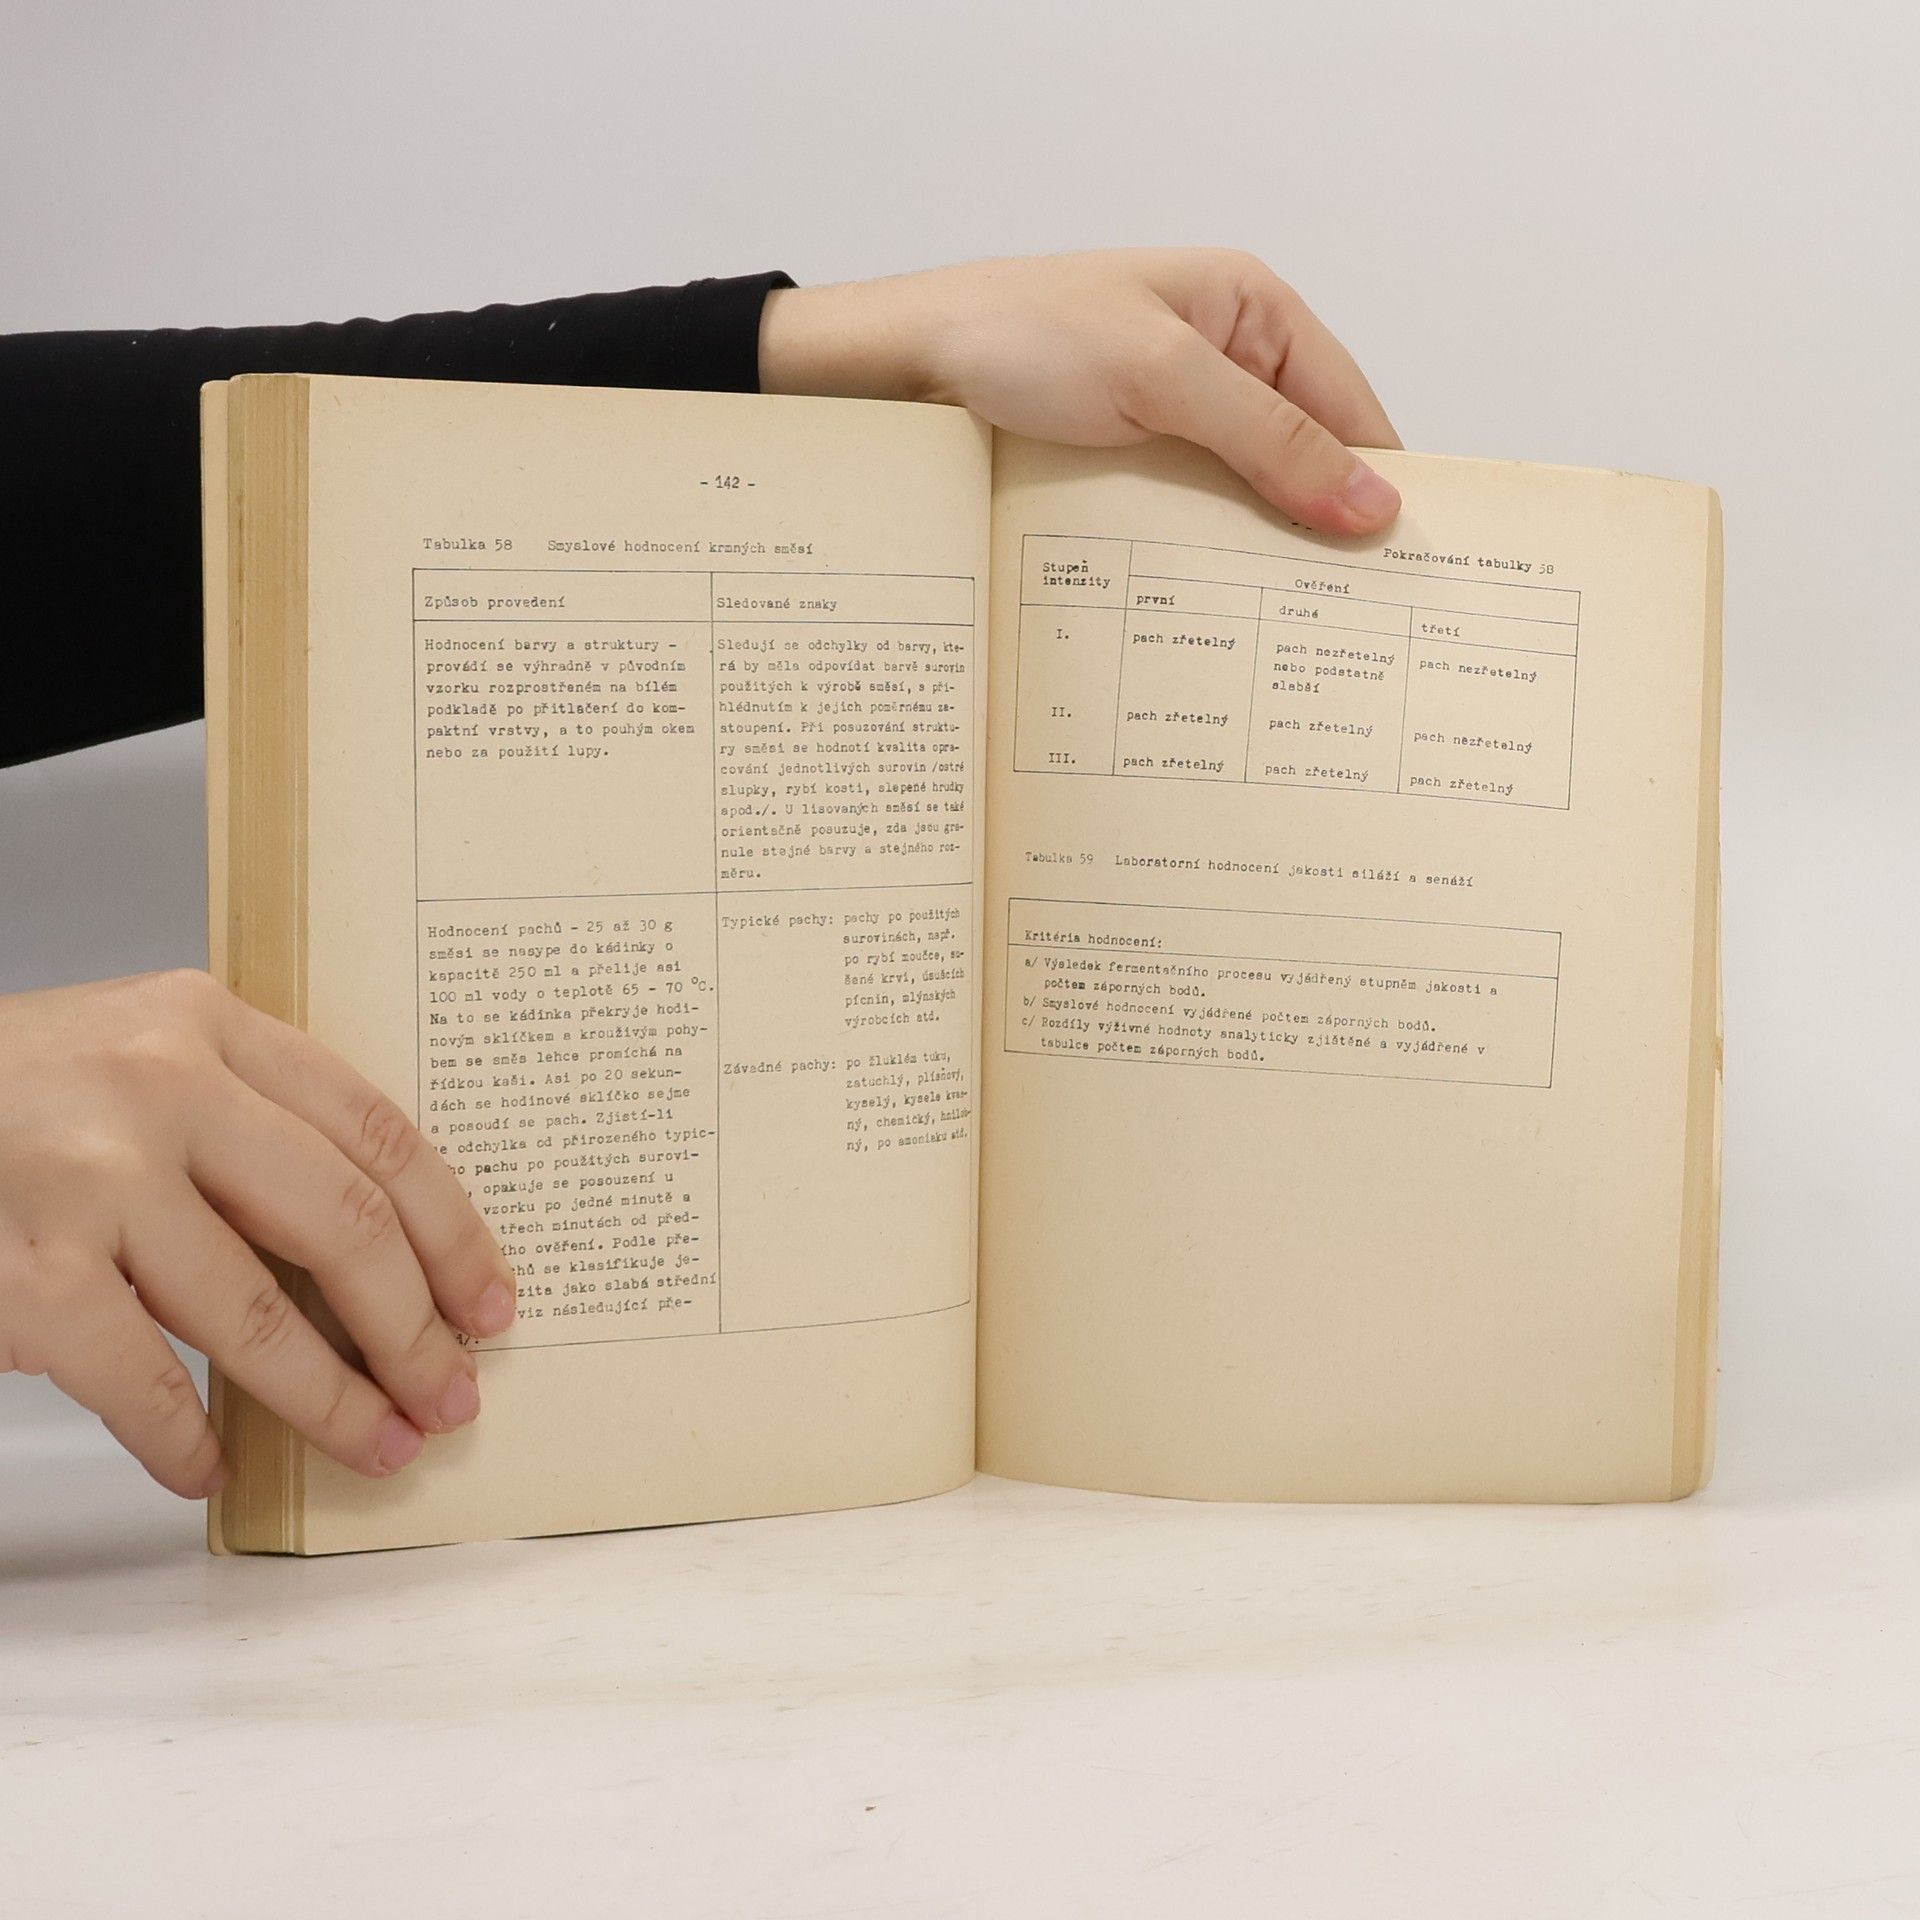 - 142 -
Tabulka 58 Smyslové hodnocení krmných směsí
Způsob provedení
Hodnocení barvy a struktury -
provádí se výhradně v původním
vzorku rozprostřeném na bílém
podkladě po přitlačení do kom-
paktní vrstvy, a to pouhým okem
nebo za použití lupy.
Sledované znaky
Sledují se odchylky od barvy, kte-
rá by měla odpovídat barvě surovin
použitých k výrobě směsí, s při-
hlédnutím k jejich poměrnému za-
stoupení. Při posuzování struktu-
ry směsi se hodnotí kvalita opra-
cování jednotlivých surovin /ostré
slupky, rybí kosti, slepené hrudky
apod./. U lisovaných směsí se také
orientačně posuzuje, zda jsou gra-
nule stejné barvy a stejného roz-
měru.
Hodnocení pachů - 25 až 30 g
směsi se nasype do kádinky o
kapacitě 250 ml a přelije asi
100 ml vody o teplotě 65 - 70 °C.
Na to se kádinka překryje hodi-
novým sklíčkem a krouživým pohy-
bem se směs lehce promíchá na
řídkou kaši. Asi po 20 sekun-
dách se hodinové sklíčko sejme
a posoudí se pach. Zjistí-li
se odchylka od přirozeného typic-
ho pachu po použitých surovi-
, opakuje se posouzení u
vzorku po jedné minutě a
třech minutách od před-
ího ověření. Podle pře-
chů se klasifikuje je-
zita jako slabá střední
viz následující pře-
/.
Typické pachy: pachy po použitých
surovinách, např.
po rybí moučce, su-
šené krvi, úsušcích
pícnin, mlýnských
výrobcích atd.
Závadné pachy: po žluklém tuku,
zatuchlý, plísňový,
kyselý, kysele kvas-
ný, chemický, hnilob-
ný, po amoniaku atd.
Pokračování tabulky 58
Stupeň
intenzity
Ověření
první druhé třetí
I. pach zřetelný pach nezřetelný pach nezřetelný
nebo podstatně
slabší
II. pach zřetelný pach zřetelný pach nezřetelný
III. pach zřetelný pach zřetelný pach zřetelný
Tabulka 59 Laboratorní hodnocení jakosti siláží a senáží
Kritéria hodnocení:
a/ Výsledek fermentačního procesu vyjádřený stupněm jakosti a
počtem záporných bodů.
b/ Smyslové hodnocení vyjádřené počtem záporných bodů.
c/ Rozdíly výživné hodnoty analyticky zjištěné a vyjádřené v
tabulce počtem záporných bodů.